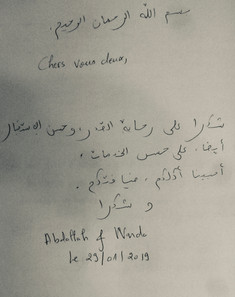 بسم الله الرحمان الرحيم.
Chers vous deux,
شكرا على رحابة الصدر، وحسن الاستقبال
أيضا، على حسن الخدمات،
أحببنا أكلتكم، ضيافتكم.
و شكرا
Abdallah & Warda
le 29/01/2019